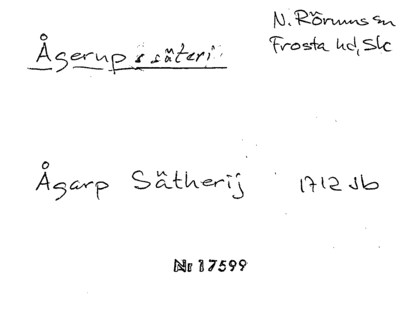 Ågerups säteri
N. Rörums sn
Frosta hd, Sk
Ågarp Sätherij 1712 Jb
Nr 17599